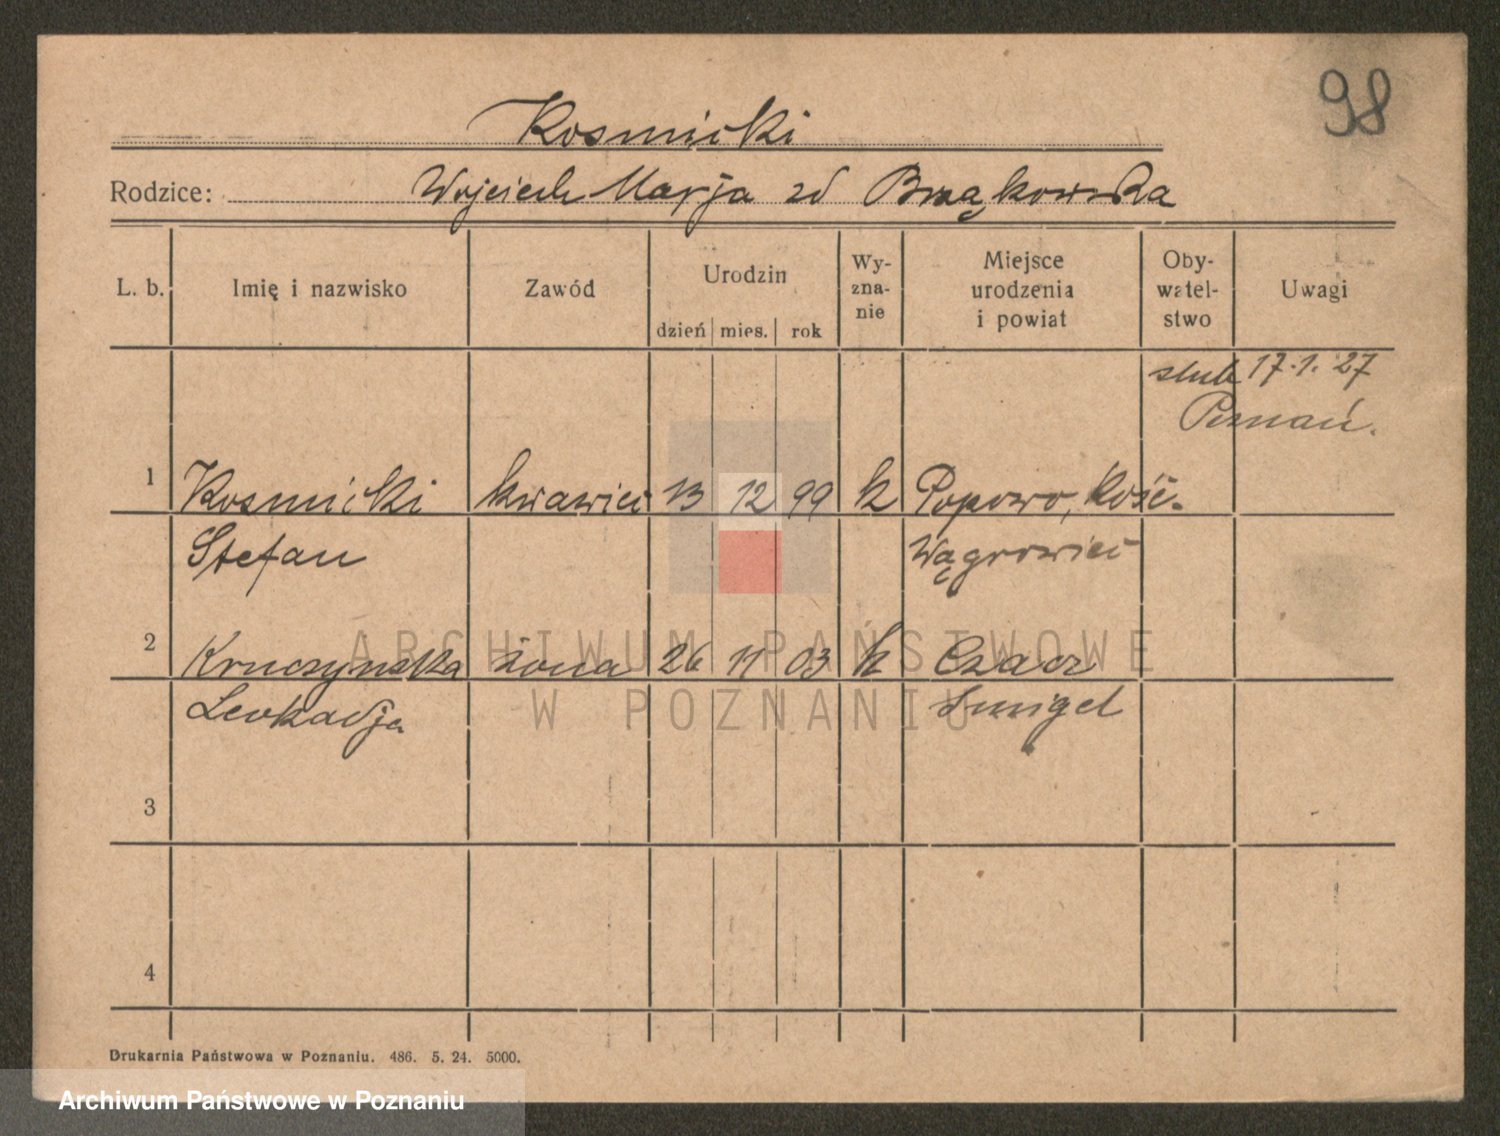 98
Kosmicki
Rodzice: Wojciech Marja zd Brząkowska
L. b. Imię i nazwisko Zawód Urodzin dzień mies. rok Wy-zna-nie Miejsce urodzenia i powiat Oby-watel-stwo Uwagi
ślub 17.1.27
Poznań.
1 Kosmicki krawiec 13 12 99 k Popowo, Kośc.
Stefan Wągrowiec
2 Kruczyńska żona 26 11 03 k Czacz
Leokadja Śmigel
3
4
Drukarnia Państwowa w Poznaniu. 486. 5. 24. 5000.
ARCHIWUM PAŃSTWOWE
W POZNANIU
Archiwum Państwowe w Poznaniu